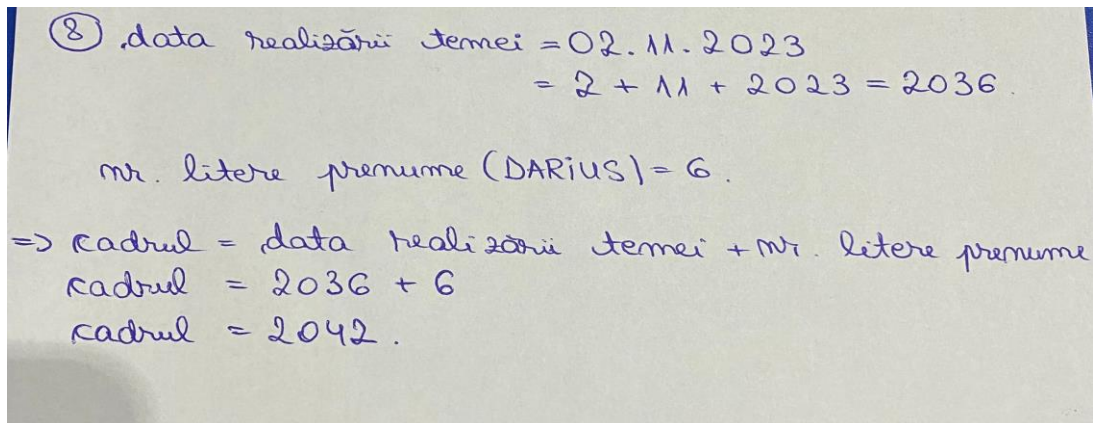 8 data realizării temei = 02.11.2023
= 2 + 11 + 2023 = 2036.
nr. litere prenume (DARiUS) = 6.
=> cadrul = data realizării temei + nr. litere prenume
cadrul = 2036 + 6
cadrul = 2042.